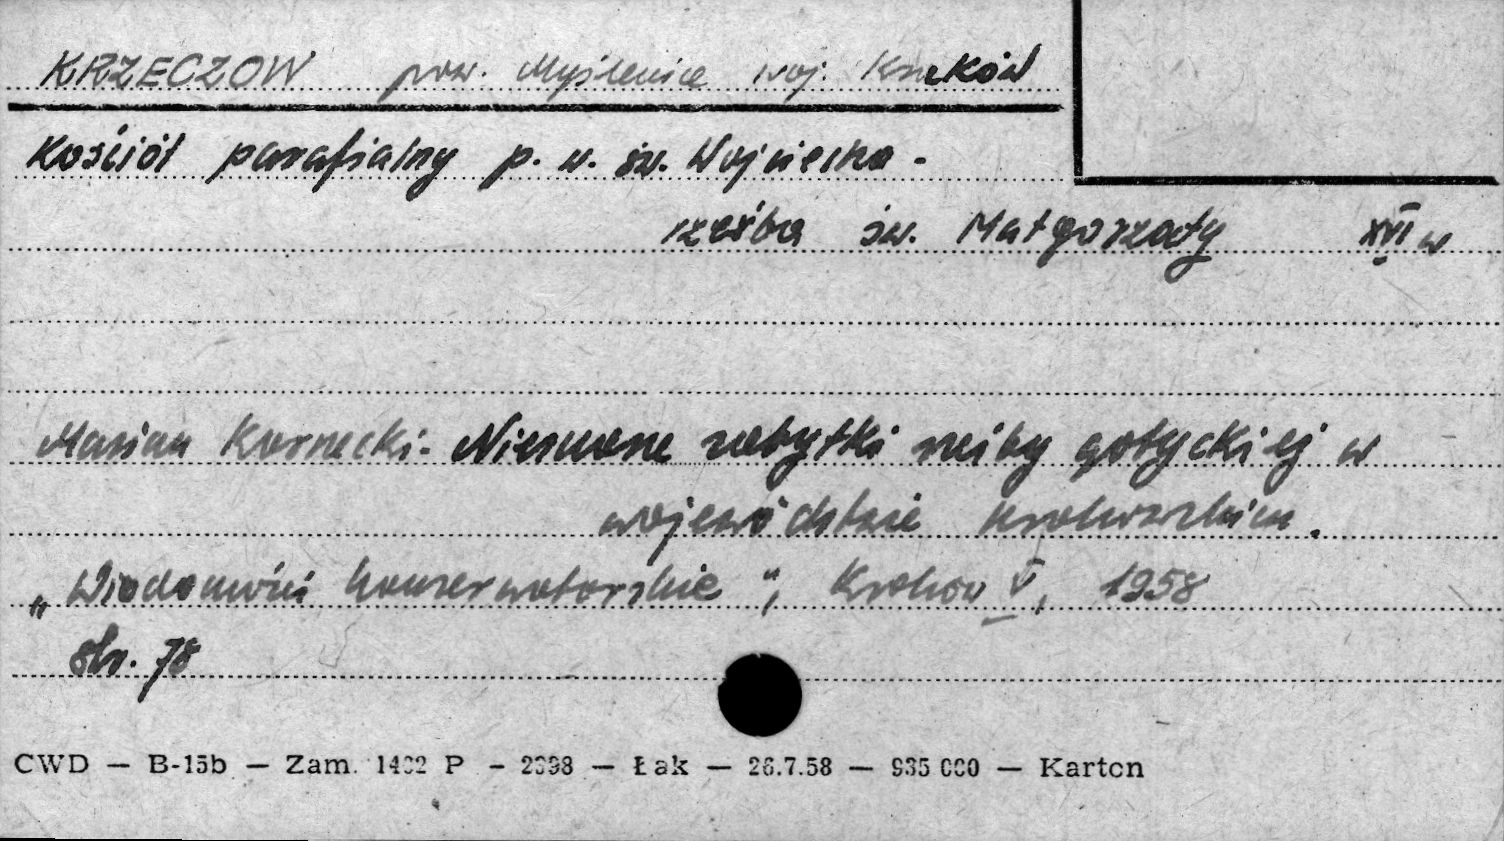 KRZECZOW pow. Myślenice woj. Kraków
Kościół parafialny p. w. św. Wojciecha -
rzeźba św. Małgorzaty XVI w
Marian Kornecki. Nieznane zabytki rzeźby gotyckiej w
województwie krakowskim.
„Wiadomości konserwatorskie", Krakow V, 1958
str. 78
CWD — B-15b — Zam. 1402 P — 2398 — Łak — 26.7.58 — 935 000 — Karton